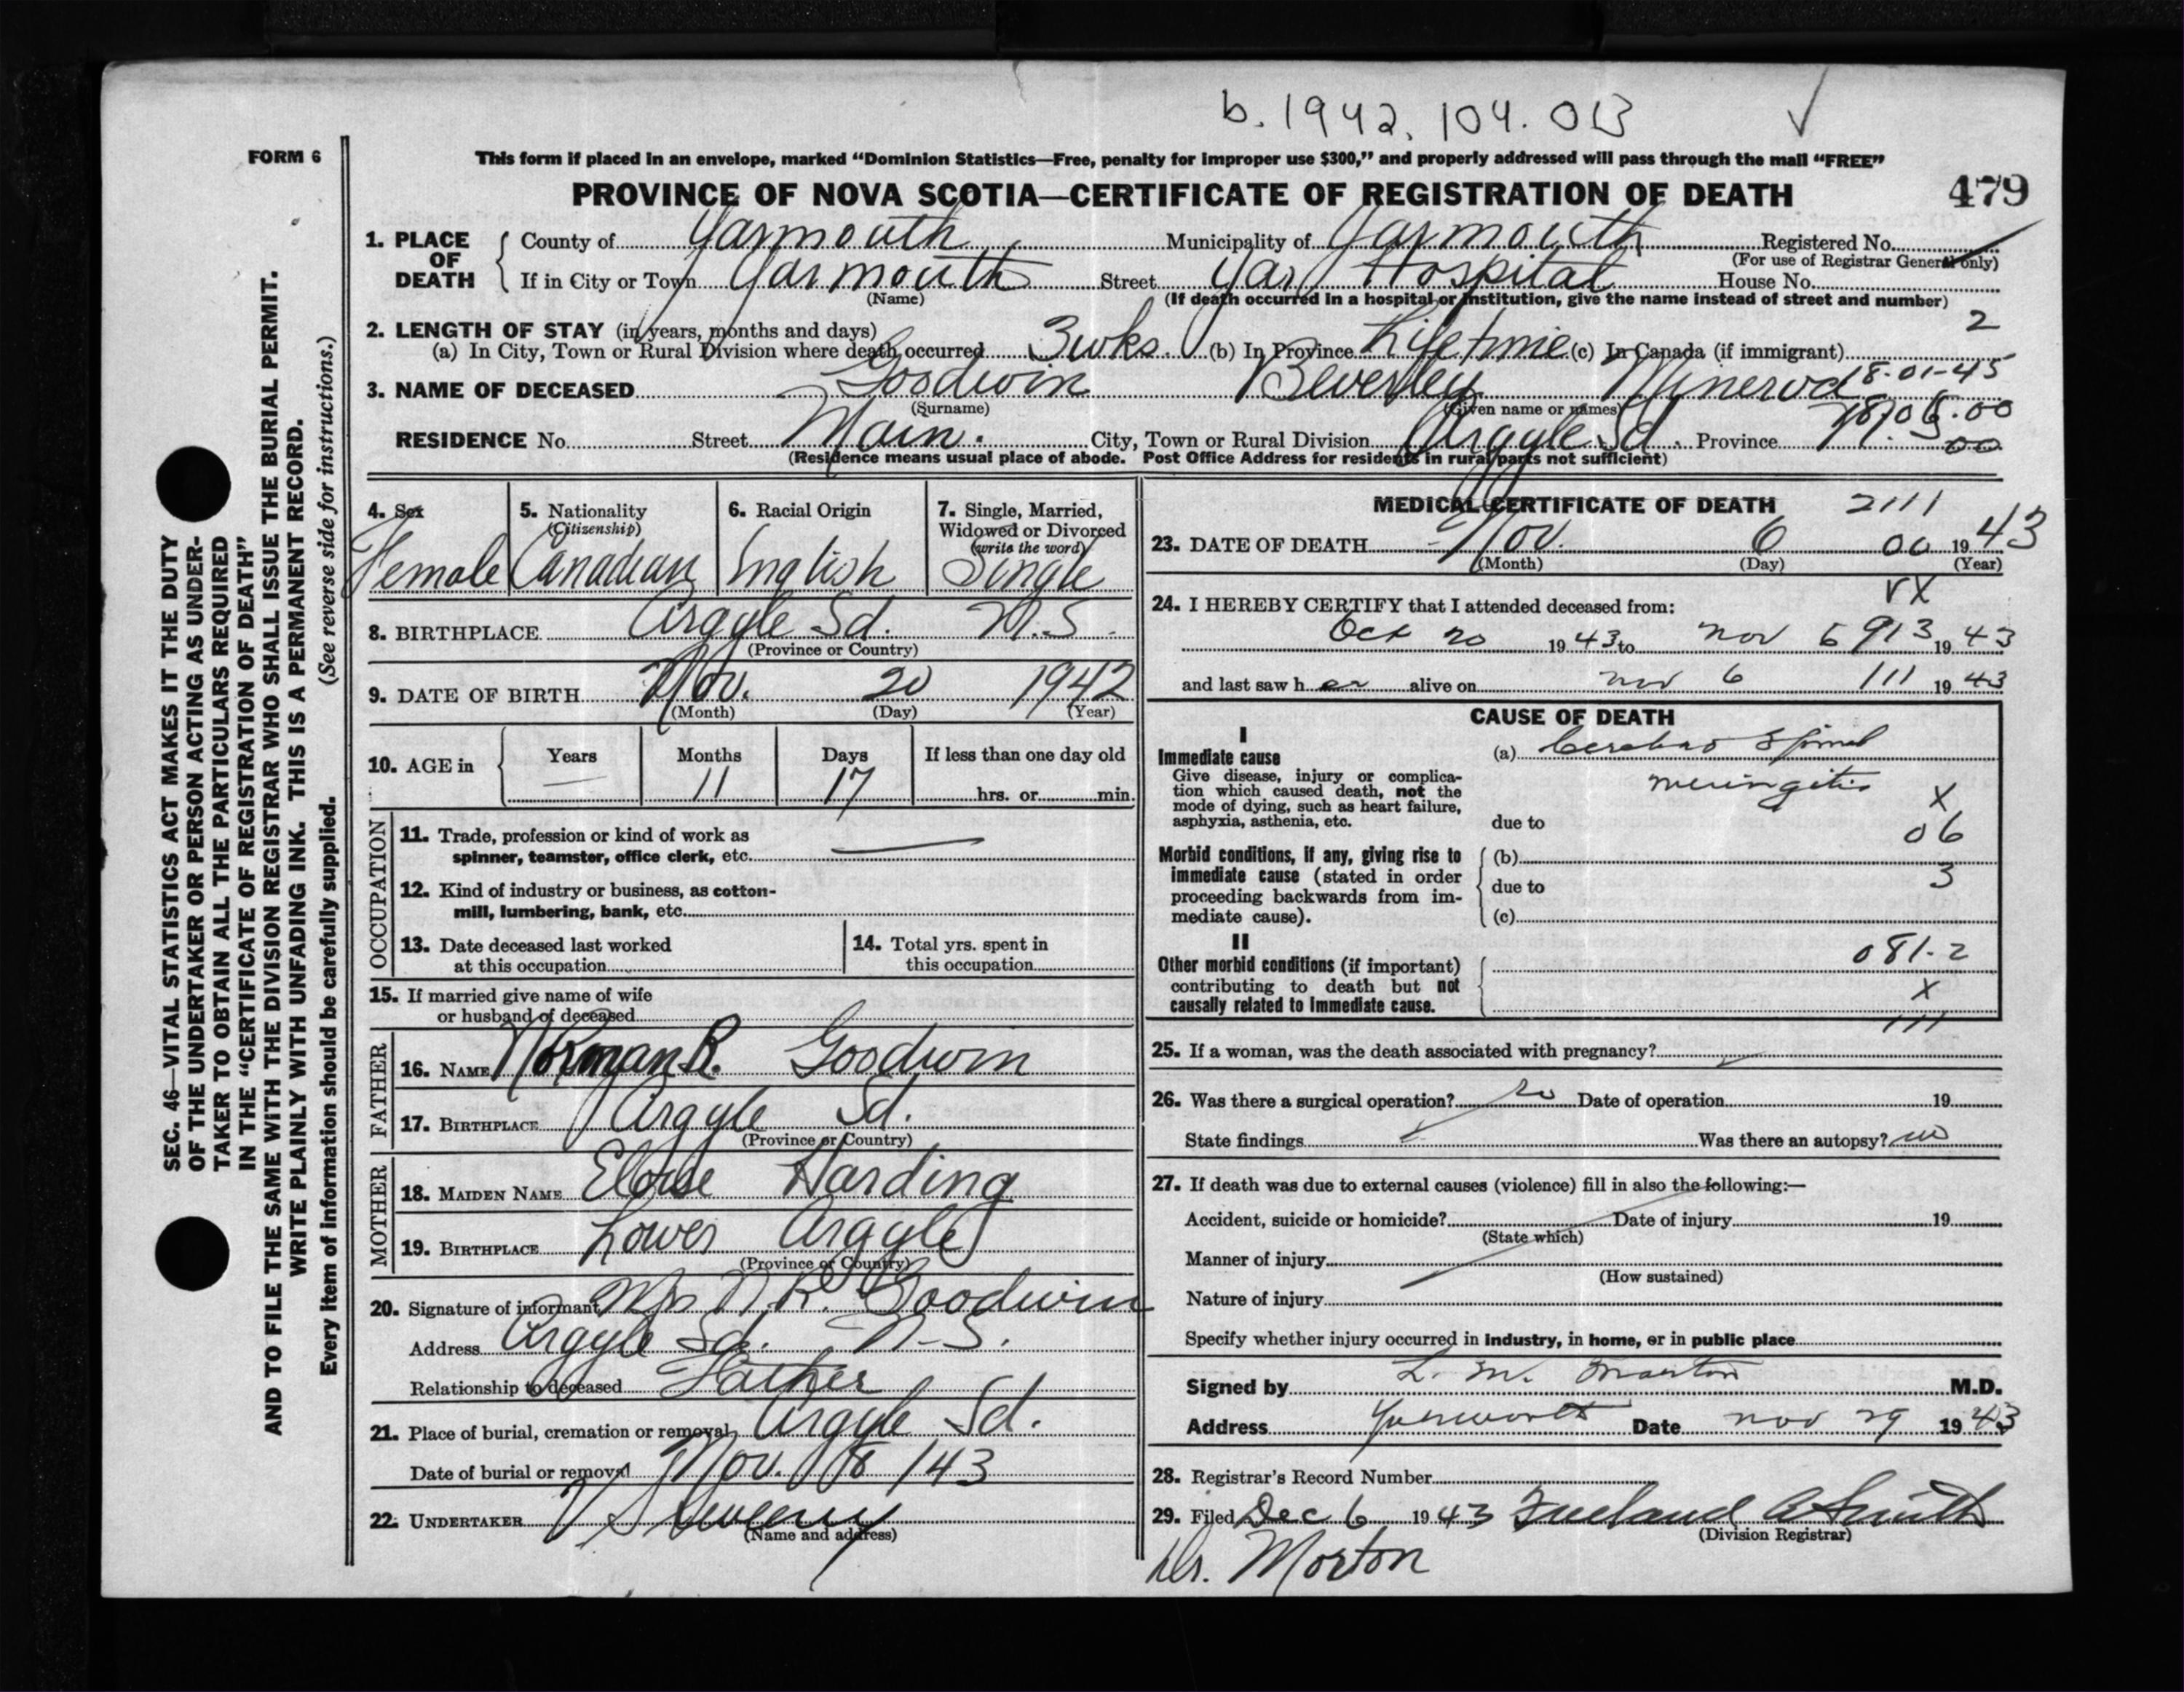 b. 1942. 104. 013 ✓
FORM 6
This form if placed in an envelope, marked "Dominion Statistics—Free, penalty for improper use $300," and properly addressed will pass through the mail "FREE"
PROVINCE OF NOVA SCOTIA—CERTIFICATE OF REGISTRATION OF DEATH 479
SEC. 46—VITAL STATISTICS ACT MAKES IT THE DUTY
OF THE UNDERTAKER OR PERSON ACTING AS UNDER-
TAKER TO OBTAIN ALL THE PARTICULARS REQUIRED
IN THE "CERTIFICATE OF REGISTRATION OF DEATH"
AND TO FILE THE SAME WITH THE DIVISION REGISTRAR WHO SHALL ISSUE THE BURIAL PERMIT.
WRITE PLAINLY WITH UNFADING INK. THIS IS A PERMANENT RECORD.
Every item of information should be carefully supplied. (See reverse side for instructions.)
1. PLACE OF DEATH County of Yarmouth Municipality of Yarmouth Registered No.
(For use of Registrar General only)
If in City or Town Yarmouth Street Yar Hospital House No.
(Name) (If death occurred in a hospital or institution, give the name instead of street and number)
2. LENGTH OF STAY (in years, months and days) 2
(a) In City, Town or Rural Division where death occurred 3 wks. (b) In Province Lifetime (c) In Canada (if immigrant)
3. NAME OF DECEASED Goodwin Beverley Minerva 18-01-45
(Surname) (Given name or names)
RESIDENCE No. Street Main. City, Town or Rural Division Argyle Sd. Province
(Residence means usual place of abode. Post Office Address for residents in rural parts not sufficient)
4. Sex 5. Nationality 6. Racial Origin 7. Single, Married,
(Citizenship) Widowed or Divorced
(write the word)
Female Canadian English Single
8. BIRTHPLACE Argyle Sd. N.S.
(Province or Country)
9. DATE OF BIRTH Nov. 20 1942
(Month) (Day) (Year)
10. AGE in Years Months Days If less than one day old
— 11 17 hrs. or min.
OCCUPATION
11. Trade, profession or kind of work as
spinner, teamster, office clerk, etc. —
12. Kind of industry or business, as cotton-
mill, lumbering, bank, etc.
13. Date deceased last worked
at this occupation
14. Total yrs. spent in
this occupation
15. If married give name of wife
or husband of deceased
FATHER
16. NAME Norman R. Goodwin
17. BIRTHPLACE Argyle Sd.
(Province or Country)
MOTHER
18. MAIDEN NAME Eloise Harding
19. BIRTHPLACE Lower Argyle
(Province or Country)
20. Signature of informant Mrs N. R. Goodwin
Address Argyle Sd. N.S.
Relationship to deceased Father
21. Place of burial, cremation or removal Argyle Sd.
Date of burial or removal Nov. 8 / 43
22. UNDERTAKER V Sweeny
(Name and address)
MEDICAL CERTIFICATE OF DEATH 2111
23. DATE OF DEATH Nov. 6 00 19 43
(Month) (Day) (Year)
VX
24. I HEREBY CERTIFY that I attended deceased from:
Oct 20 19 43 to Nov 6 913 19 43
and last saw her alive on Nov 6 111 19 43
CAUSE OF DEATH
I
Immediate cause (a) Cerebro Spinal
Give disease, injury or complica-
tion which caused death, not the
mode of dying, such as heart failure,
asphyxia, asthenia, etc.
meningitis X
due to 06
Morbid conditions, if any, giving rise to
immediate cause (stated in order
proceeding backwards from im-
mediate cause).
(b)
due to 3
(c)
II
Other morbid conditions (if important)
contributing to death but not
causally related to immediate cause.
081-2
X
111
25. If a woman, was the death associated with pregnancy?
26. Was there a surgical operation? no Date of operation 19
State findings Was there an autopsy? no
27. If death was due to external causes (violence) fill in also the following:—
Accident, suicide or homicide? Date of injury 19
(State which)
Manner of injury
(How sustained)
Nature of injury
Specify whether injury occurred in industry, in home, or in public place
Signed by L. M. Morton M.D.
Address Yarmouth Date Nov 29 19 43
28. Registrar's Record Number
29. Filed Dec 6 19 43 Freeland A Smith
(Division Registrar)
Dr. Morton